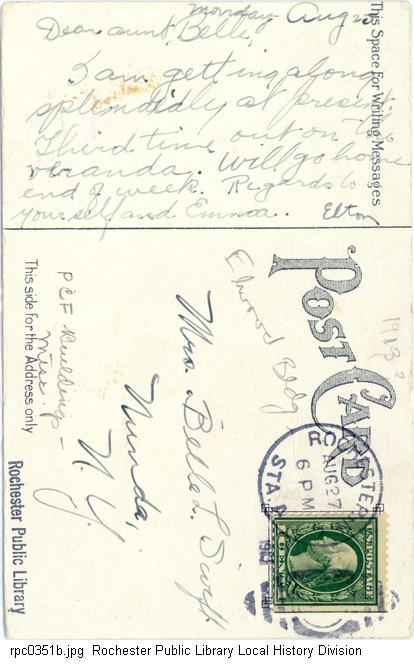 Monday Aug 25
Dear aunt Belle,
I am getting along
splendidly at present
Third time out on the
veranda. Will go home
end of week. Regards to
yourself and Emma. Elton
This Space For Writing Messages
POST CARD
Elwood Bldg
1913?
This side for the Address only
PCF Buildings -
Misc.
Mrs. Belle L. Swift
Nunda,
N.Y.
Rochester Public Library
RO STER
AUG 27
6 PM
STA.
U.S. POSTAGE
rpc0351b.jpg Rochester Public Library Local History Division